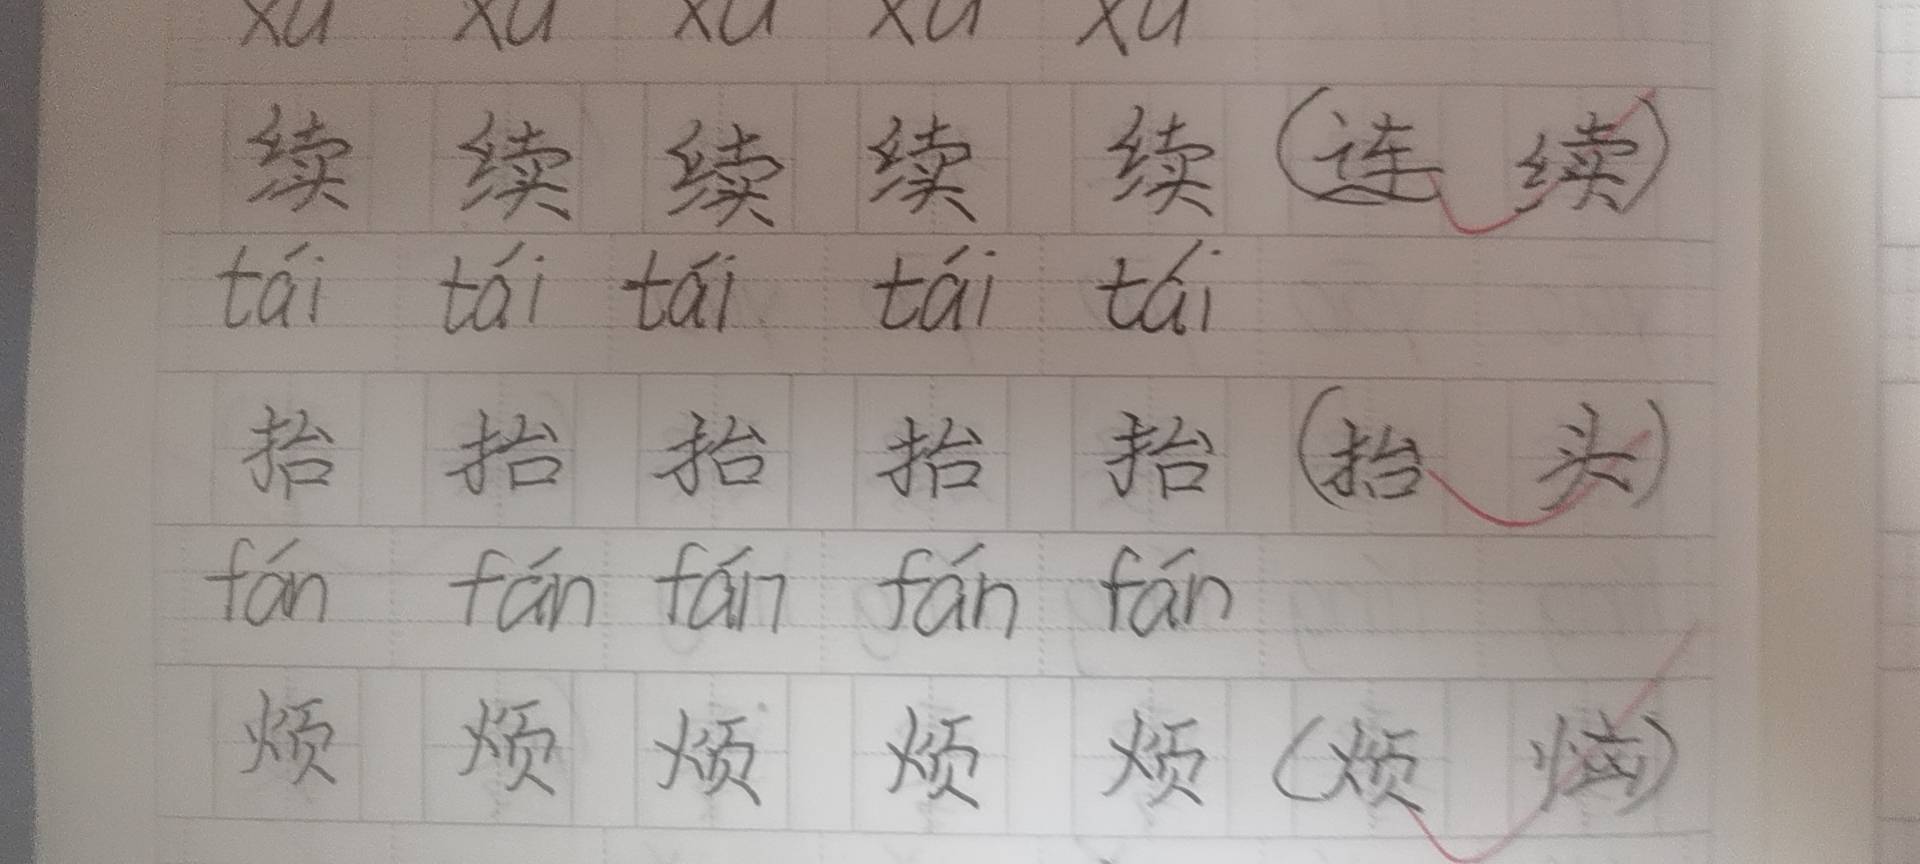 xu xu xu xu xu
续 续 续 续 续 (连 续)
tái tái tái tái tái
抬 抬 抬 抬 抬 (抬 头)
fán fán fán fán fán
烦 烦 烦 烦 烦 (烦 恼)